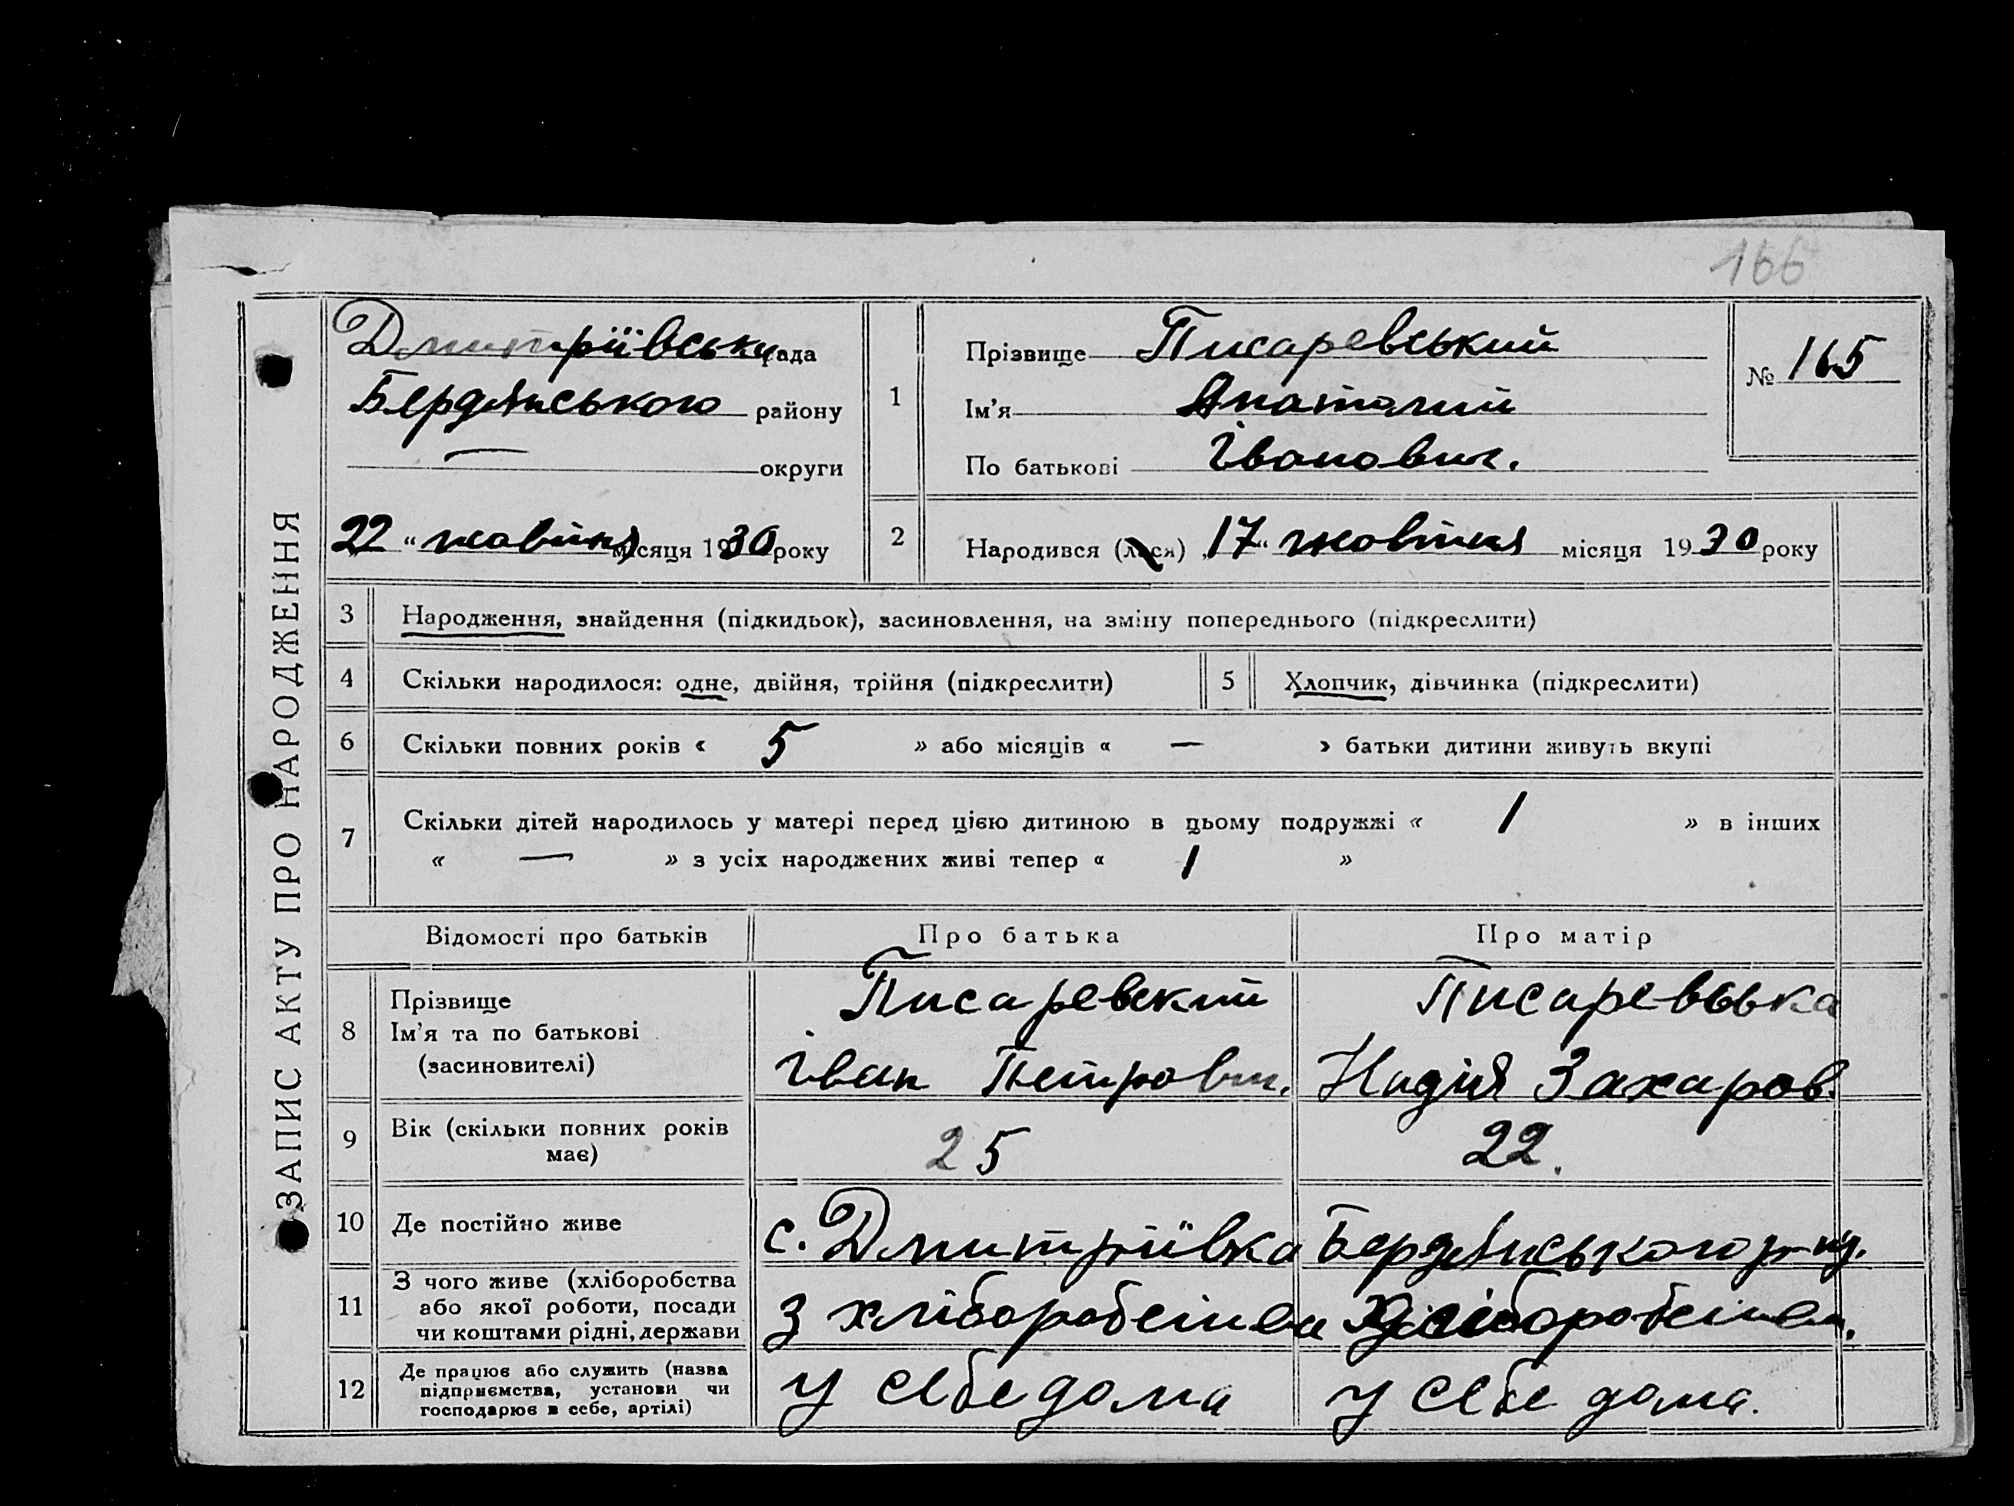 166
ЗАПИС АКТУ ПРО НАРОДЖЕННЯ
Дмитріївська рада
Бердянського району
— округи
22 " жовтня місяця 1930 року
1
Прізвище Писаревський
Ім'я Анатолий
По батькові Іванович.
№ 165
2
Народився (лася) „17" жовтня місяця 1930 року
3 Народження, знайдення (підкидьок), засиновлення, на зміну попереднього (підкреслити)
4 Скільки народилося: одне, двійня, трійня (підкреслити) 5 Хлопчик, дівчинка (підкреслити)
6 Скільки повних років « 5 » або місяців « — » батьки дитини живуть вкупі
7 Скільки дітей народилось у матері перед цією дитиною в цьому подружжі « 1 » в інших
« — » з усіх народжених живі тепер « 1 »
Відомості про батьків Про батька Про матір
8 Прізвище Писаревский Писаревська
Ім'я та по батькові
(засиновителі) Іван Петрович. Надія Захаров.
9 Вік (скільки повних років
має) 25 22.
10 Де постійно живе с. Дмитріївка Бердянського р-ну.
11 З чого живе (хліборобства
або якої роботи, посади
чи коштами рідні, держави З хліборобства хліборобства.
12 Де працює або служить (назва
підприємства, установи чи
господарює в себе, артілі) У себе дома У себе дома.